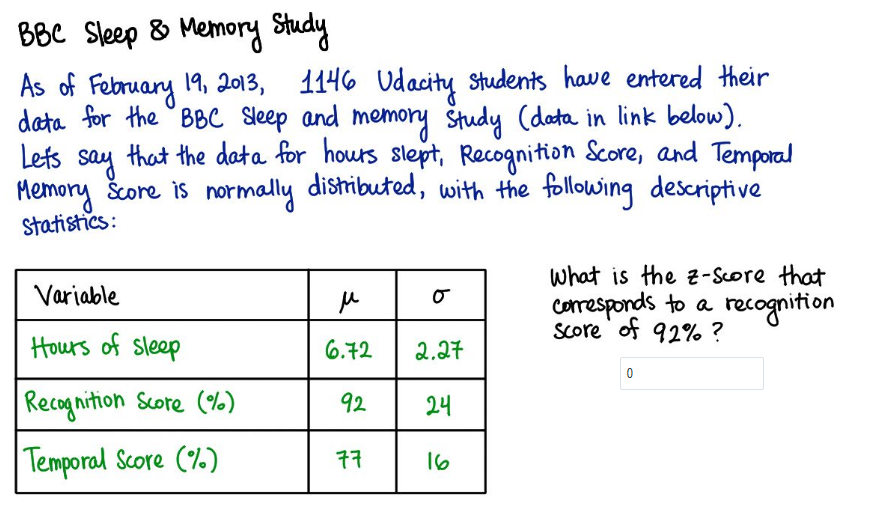 BBC Sleep & Memory Study
As of February 19, 2013, 1146 Udacity students have entered their
data for the BBC Sleep and memory Study (data in link below).
Lets say that the data for hours slept, Recognition Score, and Temporal
Memory Score is normally distributed, with the following descriptive
statistics:
Variable μ σ
Hours of sleep 6.72 2.27
Recognition Score (%) 92 24
Temporal Score (%) 77 16
What is the z-score that
corresponds to a recognition
score of 92% ?
0